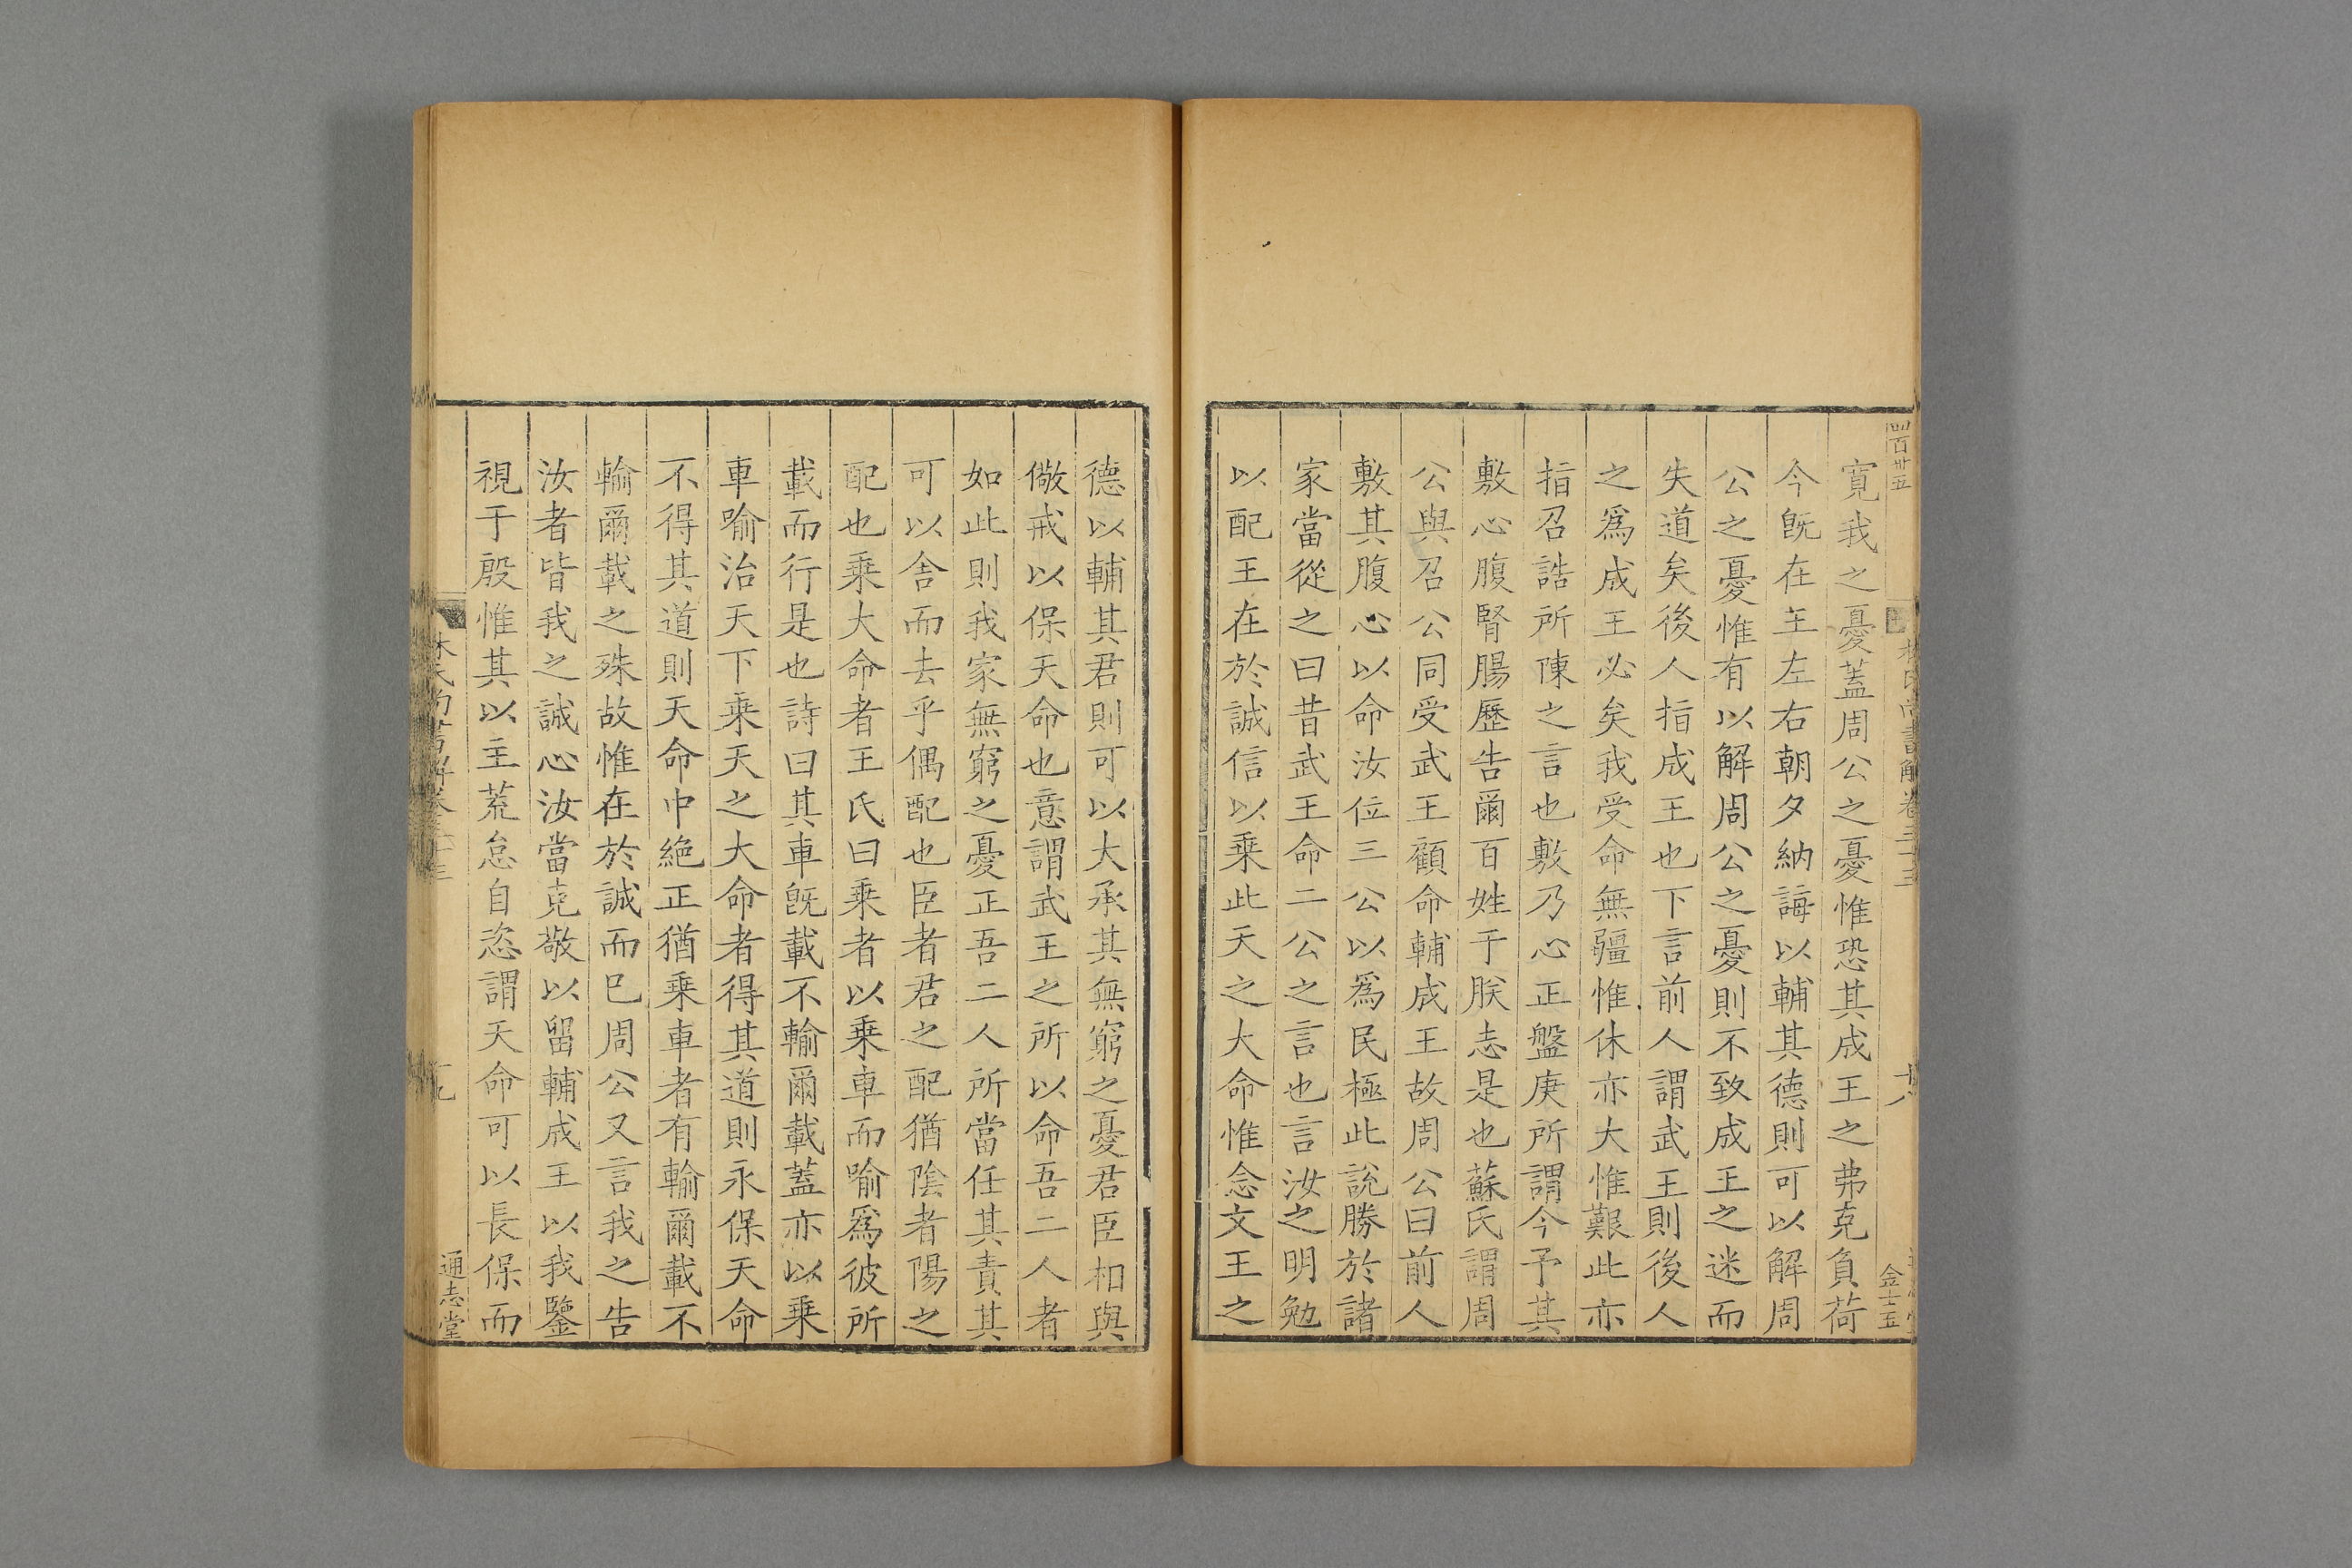 林氏尚書解卷三十三
十八
金士玉
寛我之憂蓋周公之憂惟恐其成王之弗克負荷
今旣在王左右朝夕納誨以輔其德則可以解周
公之憂惟有以解周公之憂則不致成王之迷而
失道矣後人指成王也下言前人謂武王則後人
之爲成王必矣我受命無疆惟休亦大惟艱此亦
指召誥所陳之言也敷乃心正盤庚所謂今予其
敷心腹腎腸歷告爾百姓于朕志是也蘇氏謂周
公與召公同受武王顧命輔成王故周公曰前人
敷其腹心以命汝位三公以爲民極此說勝於諸
家當從之曰昔武王命二公之言也言汝之明勉
以配王在於誠信以乗此天之大命惟念文王之
德以輔其君則可以大承其無窮之憂君臣相與
儆戒以保天命也意謂武王之所以命吾二人者
如此則我家無窮之憂正吾二人所當任其責其
可以舍而去乎偶配也臣者君之配猶陰者陽之
配也乗大命者王氏曰乗者以乗車而喻爲彼所
載而行是也詩曰其車旣載不輸爾載蓋亦以乗
車喻治天下乗天之大命者得其道則永保天命
不得其道則天命中絶正猶乗車者有輸爾載不
輸爾載之殊故惟在於誠而已周公又言我之告
汝者皆我之誠心汝當克敬以留輔成王以我鑒
視于殷惟其以主荒怠自恣謂天命可以長保而
林氏尚書解卷三十三
十九
通志堂